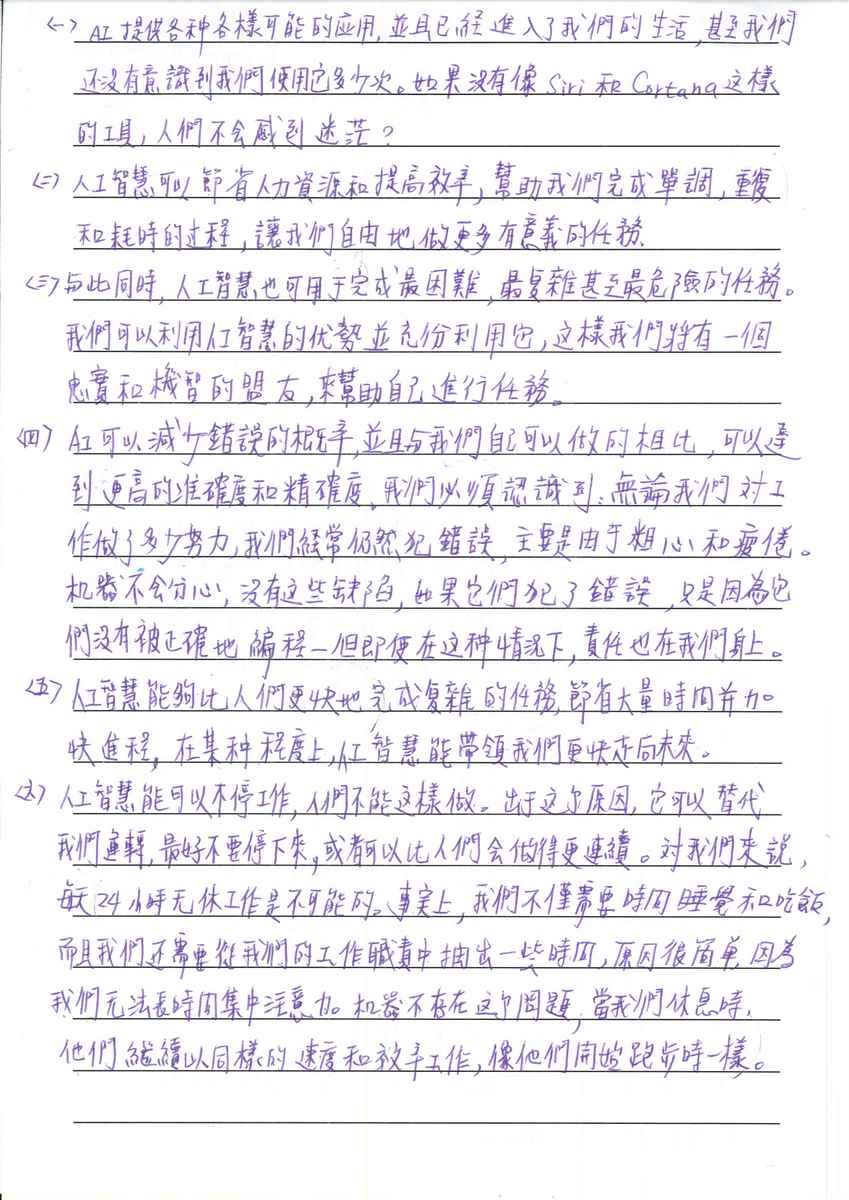 <一> AI提供各种各樣可能的应用,並且已经進入了我們的生活,甚至我們
还没有意識到我們使用它多少次。如果没有像Siri和Cortana这樣
的工具,人們不会感到迷茫?
<二> 人工智慧可以節省人力資源和提高效率,幫助我們完成單調,重復
和耗時的过程,讓我們自由地做更多有意義的任務.
<三> 与此同時,人工智慧也可用于完成最困難,最复雜甚至最危險的任務。
我們可以利用人工智慧的优勢並充份利用它,这樣我們將有一個
忠實和機智的盟友,來幫助自己進行任務。
<四> AI可以減少錯誤的概率,並且与我們自己可以做的相比,可以達
到更高的准確度和精確度.我們必須認識到:無論我們对工
作做了多少努力,我們經常仍然犯錯誤,主要是由于粗心和疲倦。
机器不会分心,没有这些缺陷,如果它們犯了錯誤,只是因為它
們没有被正確地編程—但即便在这种情況下,責任也在我們身上。
<五> 人工智慧能夠比人們更快地完成复雜的任務,節省大量時间并加
快進程,在某种程度上,人工智慧能帶領我們更快走向未來。
<六> 人工智慧能可以不停工作,人們不能这樣做。出于这个原因,它可以替代
我們運轉,最好不要停下來,或者可以比人們会做得更連續。对我們來説,
每天24小時无休工作是不可能的。事実上,我們不僅需要時间睡覺和吃飯,
而且我們还需要從我們的工作職責中抽出一些時间,原因很简單,因為
我們无法長時间集中注意力。机器不存在这个問題,當我們休息時,
他們繼續以同樣的速度和效率工作,像他們開始跑步時一樣。